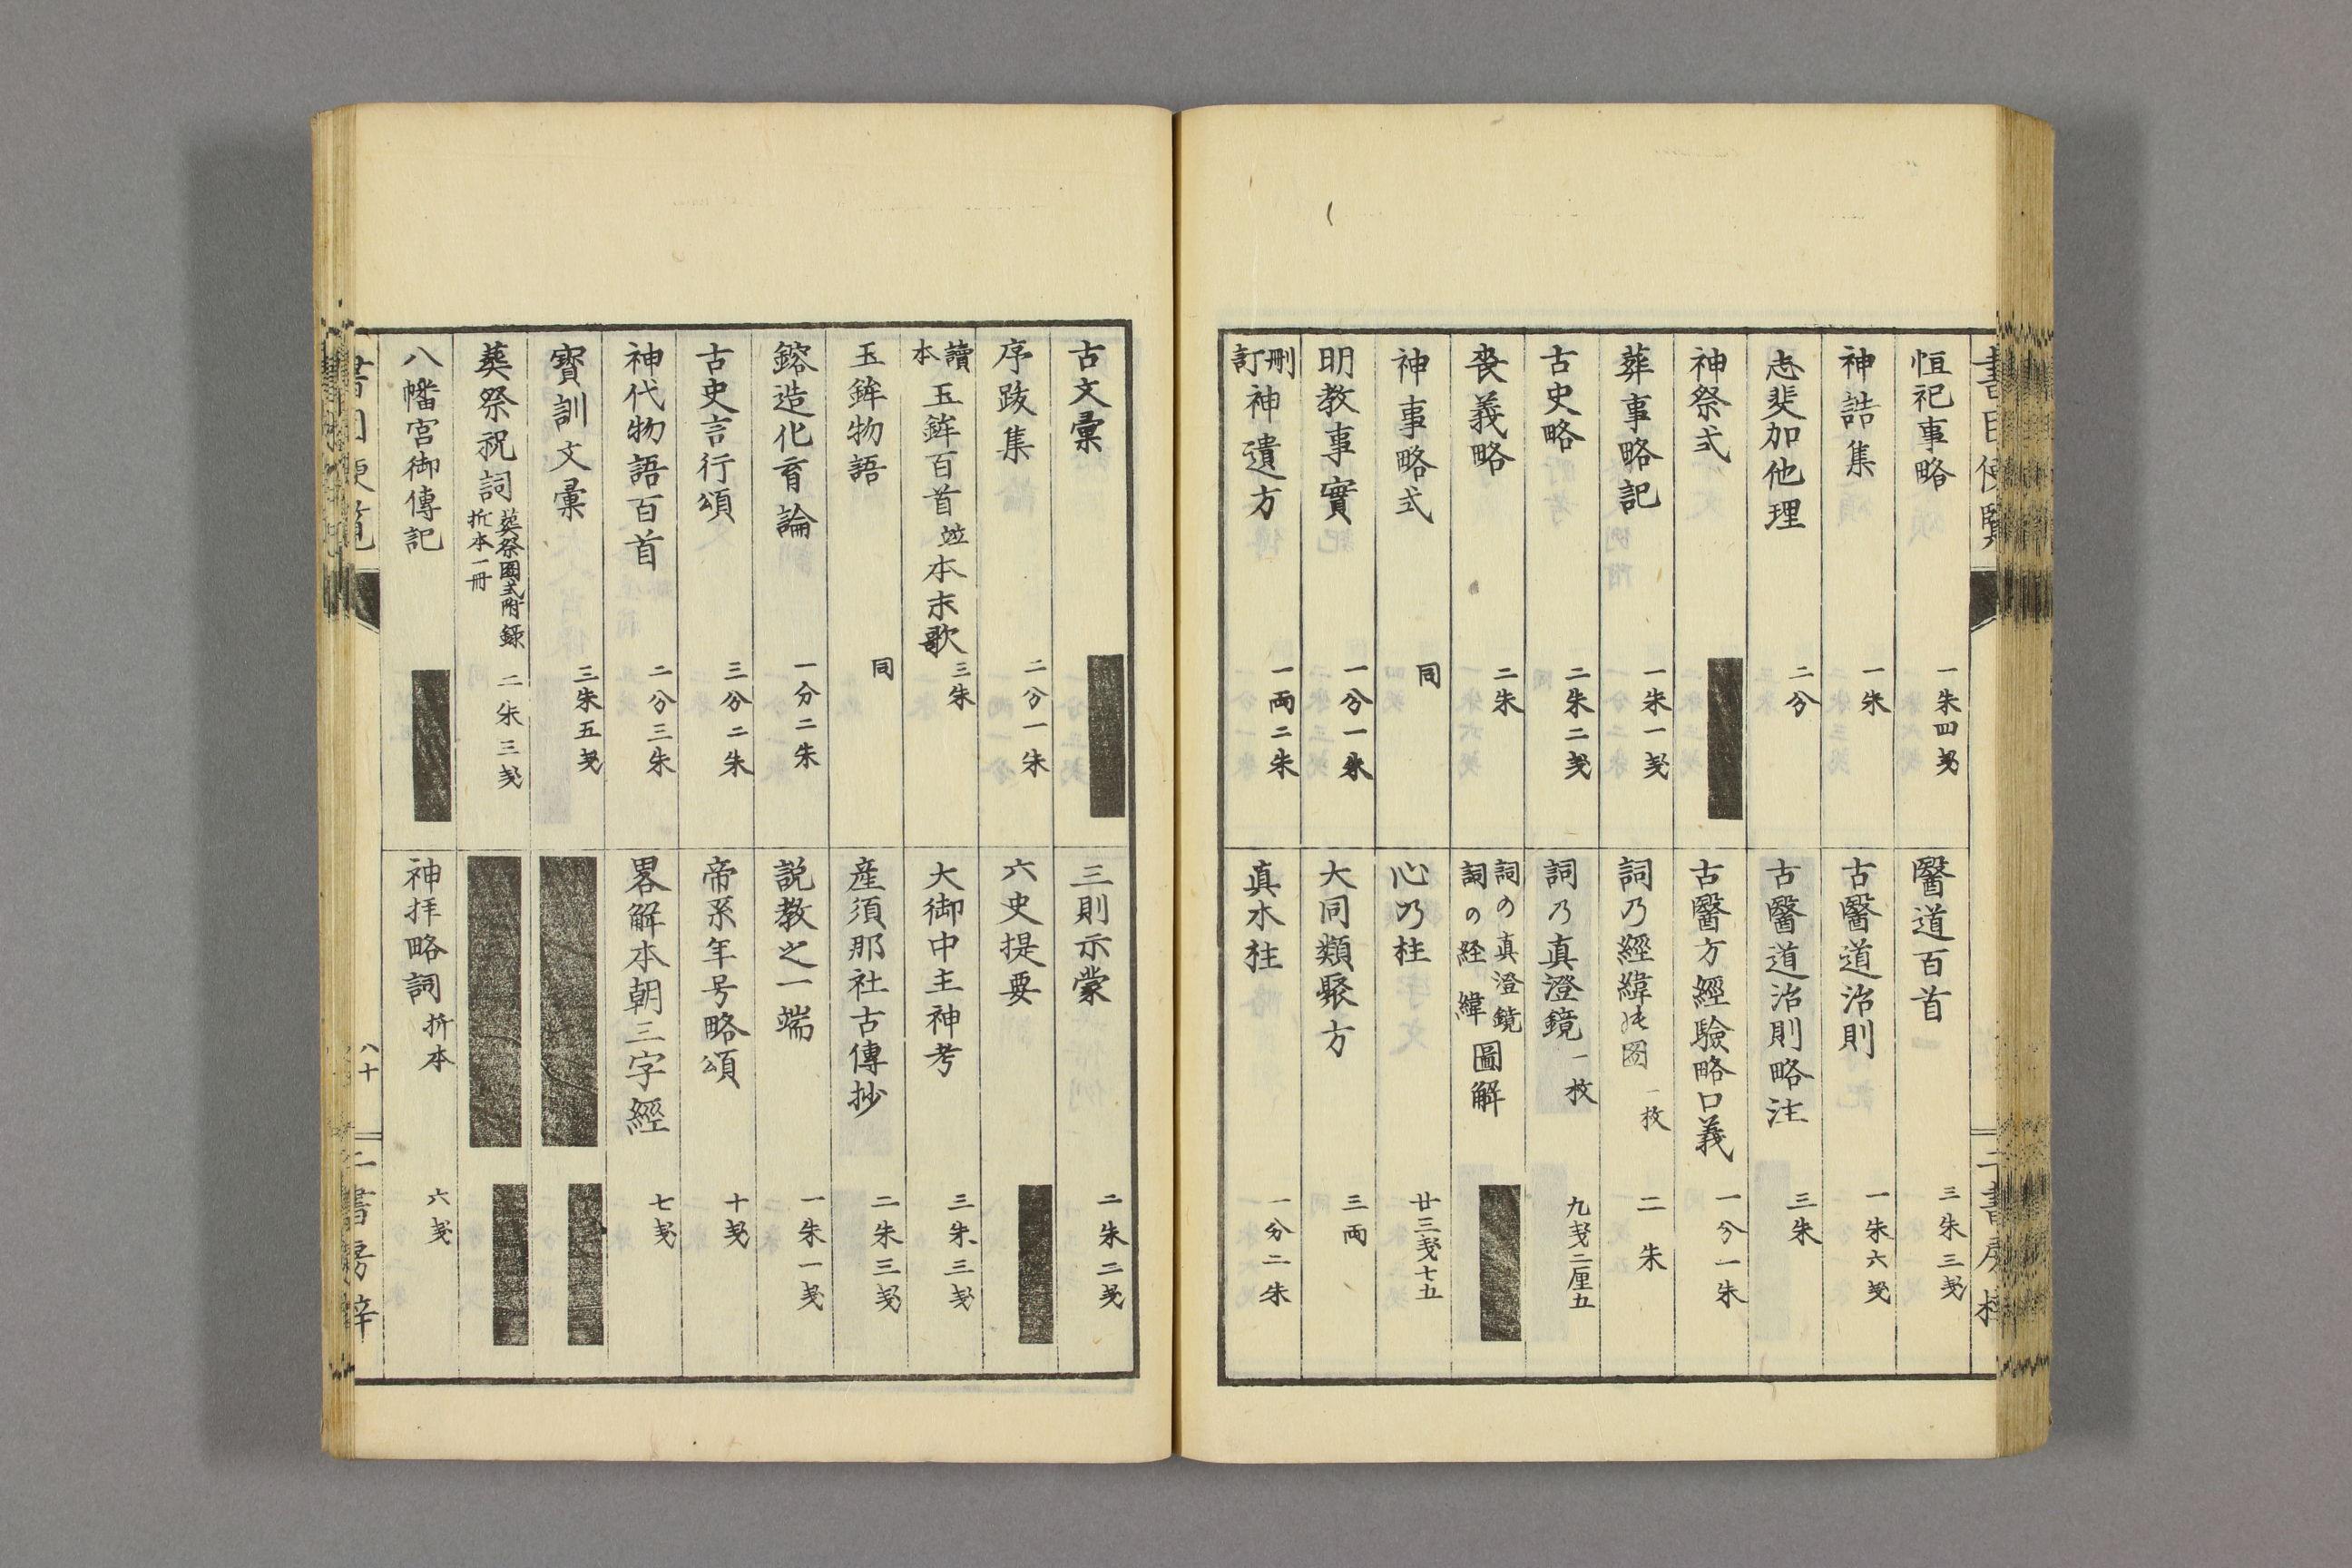 恒祀事略 一朱四匁
神誥集 一朱
志斐加他理 二分
神祭式
葬事略記 一朱一匁
古史略 二朱二匁
喪義略 二朱
神事略式 同
明教事實 一分一朱
刪訂神遺方 一両二朱
醫道百首 三朱三匁
古醫道治則 一朱六匁
古醫道治則略注 三朱
古醫方經驗略口義 一分一朱
詞乃經緯 圖 一枚 二朱
詞乃真澄鏡 一枚 九匁二厘五
詞の真澄鏡詞の経緯圖解
心乃柱 廿三匁七五
大同類聚方 三両
真木柱 一分二朱
古文彙
序跋集 二分一朱
讀本玉鉾百首並本末歌 三朱
玉鉾物語 同
鎔造化育論 一分二朱
古史言行頌 三分二朱
神代物語百首 二分三朱
寳訓文彙 三朱五匁
葬祭祝詞 葬祭圖式附錄折本一冊 二朱三匁
八幡宮御傳記
三則示蒙 二朱二匁
六史提要
大御中主神考 三朱三匁
産須那社古傳抄 二朱三匁
説教之一端 一朱一匁
帝系年号略頌 十匁
畧解本朝三字經 七匁
神拝略詞 折本 六匁
八十